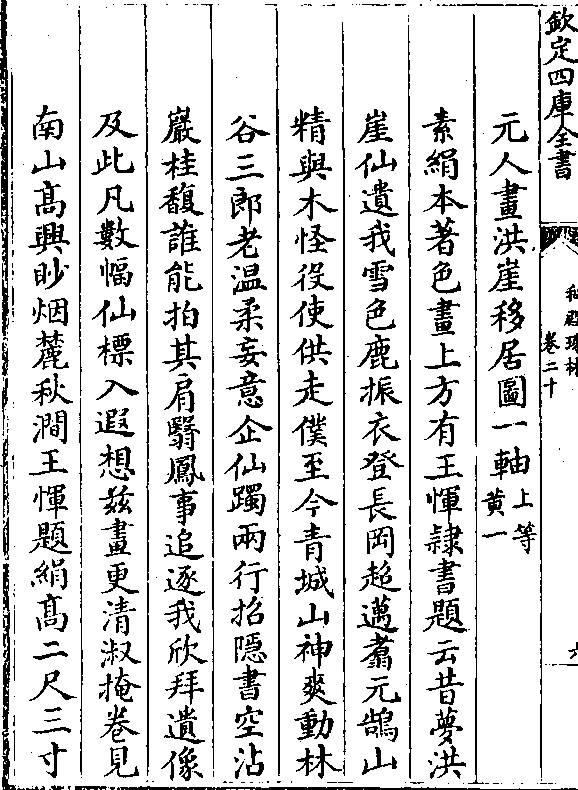 欽定四庫全書
秘殿珠林
卷二十
六
元人畫洪崖移居圖一軸上等黄一
素絹本著色畫上方有王惲隷書題云昔夢洪
崖仙遺我雪色鹿振衣登長岡超邁翥元鵠山
精與木怪役使供走僕至今青城山神爽動林
谷三郎老温柔妄意企仙躅兩行招隱書空沾
巖桂馥誰能拍其肩翳鳳事追逐我欣拜遺像
及此凡數幅仙標入遐想兹畫更清淑掩巻見
南山髙興眇烟麓秋澗王惲題絹髙二尺三寸